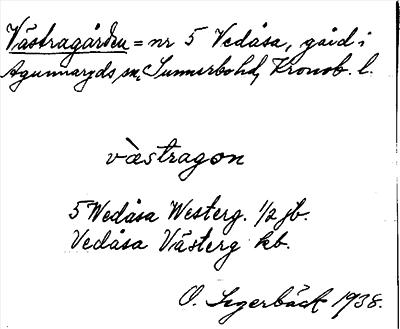 Västragården = nr 5 Vedåsa, gård i
Agunnaryds sn, Sunnerbo hd, Kronob. l.
vàstragon
5 Wedåsa Westerg. 1/2 jb.
Vedåsa Västerg kb.
O. Segerbäck 1938.